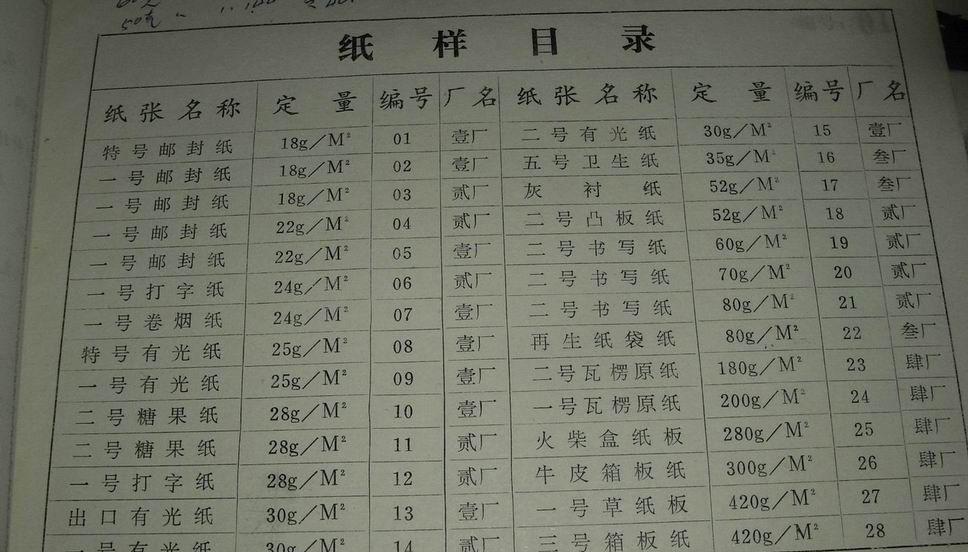 50克
纸样目录
纸张名称 定量 编号 厂名 纸张名称 定量 编号 厂名
特号邮封纸 18g/M² 01 壹厂 二号有光纸 30g/M² 15 壹厂
一号邮封纸 18g/M² 02 壹厂 五号卫生纸 35g/M² 16 叁厂
一号邮封纸 18g/M² 03 贰厂 灰衬纸 52g/M² 17 叁厂
一号邮封纸 22g/M² 04 贰厂 二号凸板纸 52g/M² 18 贰厂
一号邮封纸 22g/M² 05 壹厂 二号书写纸 60g/M² 19 贰厂
一号打字纸 24g/M² 06 贰厂 二号书写纸 70g/M² 20 贰厂
一号卷烟纸 24g/M² 07 壹厂 二号书写纸 80g/M² 21 贰厂
特号有光纸 25g/M² 08 壹厂 再生纸袋纸 80g/M² 22 叁厂
一号有光纸 25g/M² 09 壹厂 二号瓦楞原纸 180g/M² 23 肆厂
二号糖果纸 28g/M² 10 壹厂 一号瓦楞原纸 200g/M² 24 肆厂
二号糖果纸 28g/M² 11 贰厂 火柴盒纸板 280g/M² 25 肆厂
一号打字纸 28g/M² 12 贰厂 牛皮箱板纸 300g/M² 26 肆厂
出口有光纸 30g/M² 13 壹厂 一号草纸板 420g/M² 27 肆厂
一号有光纸 30g/M² 14 贰厂 三号箱板纸 420g/M² 28 肆厂